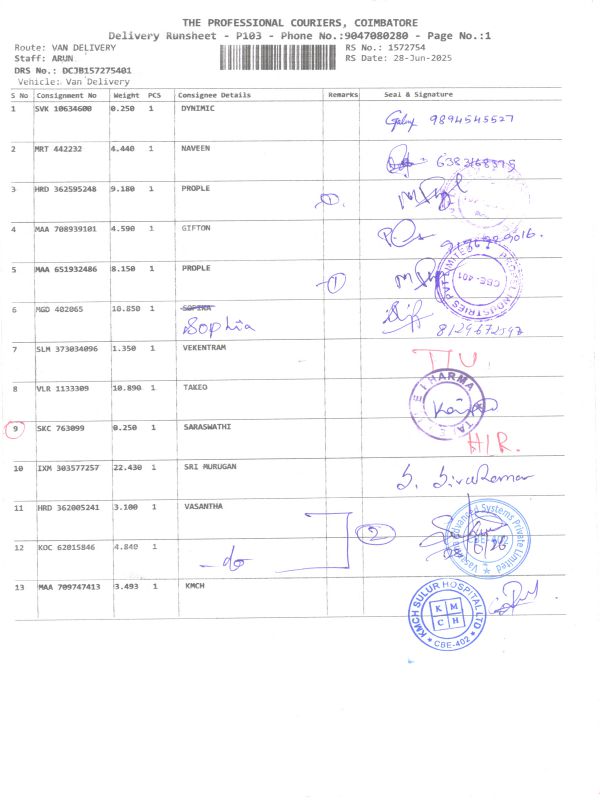 THE PROFESSIONAL COURIERS, COIMBATORE
Delivery Runsheet - P103 - Phone No.:9047080280 - Page No.:1
Route: VAN DELIVERY RS No.: 1572754
Staff: ARUN RS Date: 28-Jun-2025
DRS No.: DCJB157275401
Vehicle: Van Delivery
S No Consignment No Weight PCS Consignee Details Remarks Seal & Signature
1 SVK 10634600 0.250 1 DYNIMIC 9894545527
2 MRT 442232 4.440 1 NAVEEN
3 HRD 362595248 9.180 1 PROPLE 1
4 MAA 708939101 4.590 1 GIFTON
5 MAA 651932486 8.150 1 PROPLE 1
CBE-401
6 MGD 402065 10.850 1 SOPIKA
Sophia
7 SLM 373034096 1.350 1 VEKENTRAM
8 VLR 1133309 10.890 1 TAKEO
PHARMA
9 SKC 763099 0.250 1 SARASWATHI
10 IXM 303577257 22.430 1 SRI MURUGAN
11 HRD 362005241 3.100 1 VASANTHA
2
Advanced Systems Private Limited
12 KOC 62015846 4.840 1 - do
13 MAA 709747413 3.493 1 KMCH
KMCH SULUR HOSPITAL LTD
K M
C H
CBE-402